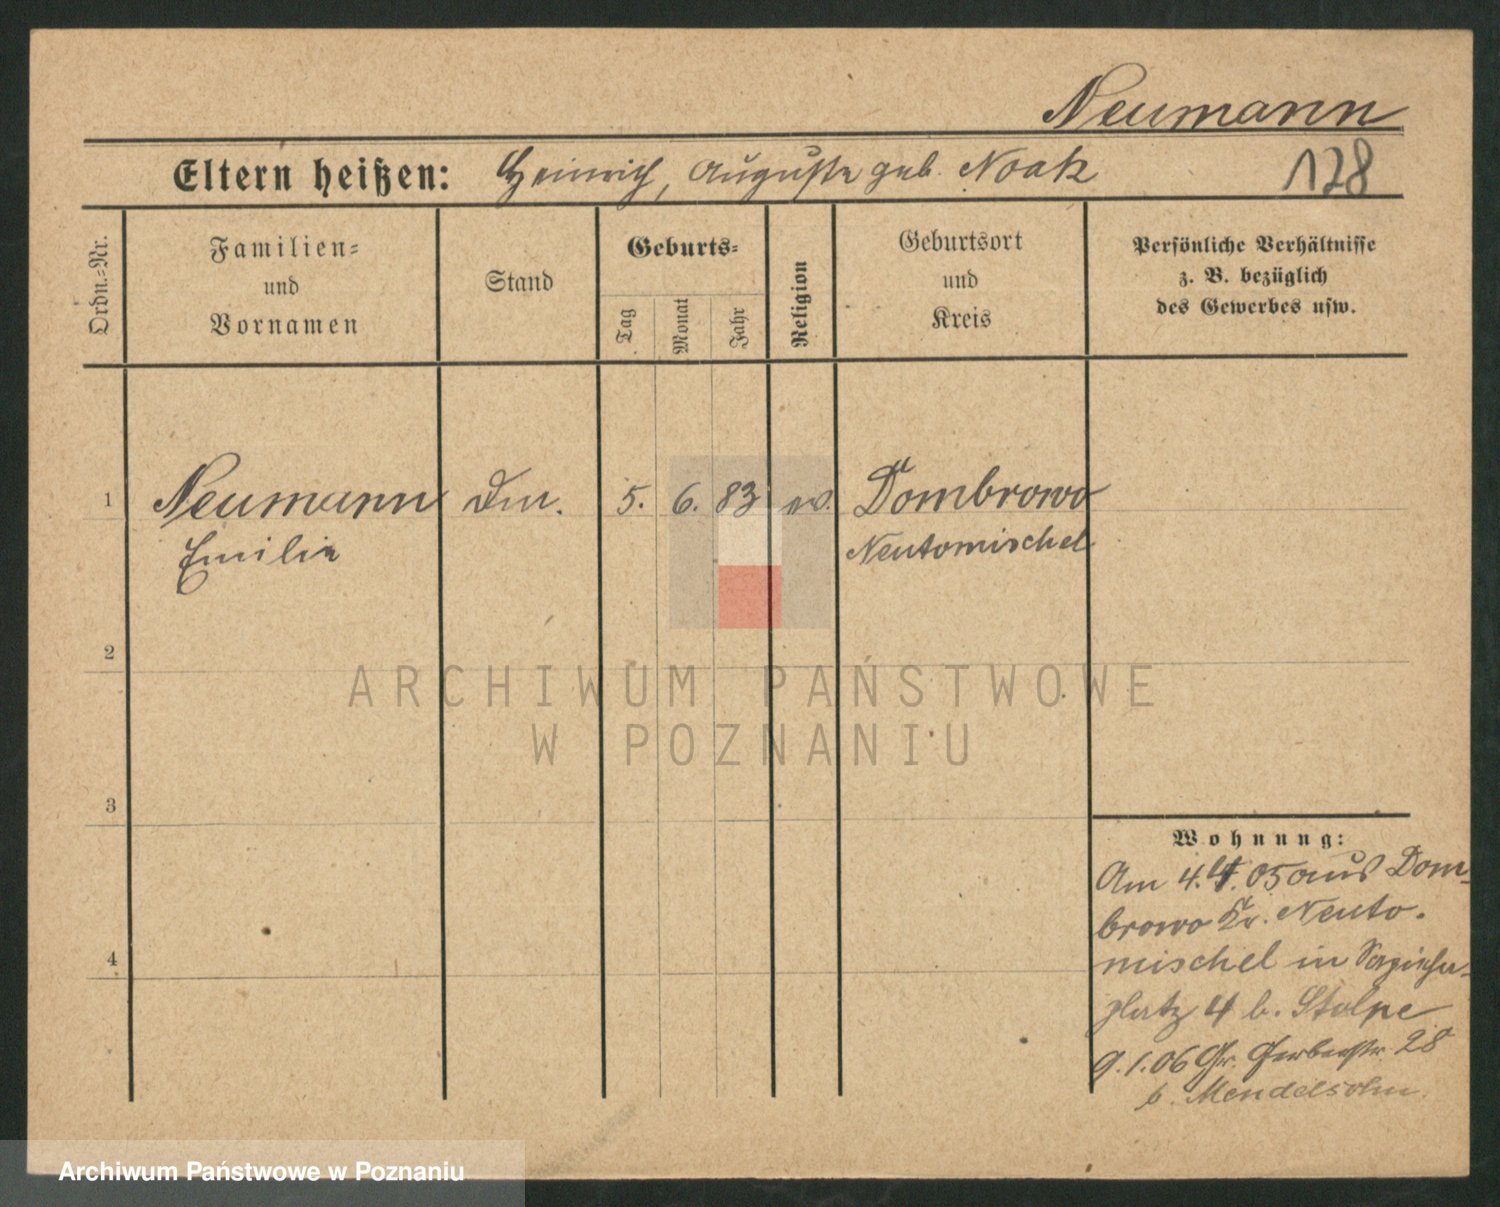 Neumann
Eltern heißen: Heinrich, Auguste geb. Noak
178
Ordn.-Nr.
Familien-
und
Vornamen
Stand
Geburts-
Tag
Monat
Jahr
Religion
Geburtsort
und
Kreis
Persönliche Verhältnisse
z. B. bezüglich
des Gewerbes usw.
1
Neumann
Emilie
Dm.
5.
6.
83
ev.
Dombrowo
Neutomischel
2
ARCHIWUM PAŃSTWOWE
W POZNANIU
3
Wohnung:
Am 4.4.05 aus Dom-
browo Kr. Neuto-
mischel in Sapieha-
platz 4 b. Stolpe
9.1.06 Gr. Gerberstr. 28
b. Mendelsohn.
4
Archiwum Państwowe w Poznaniu